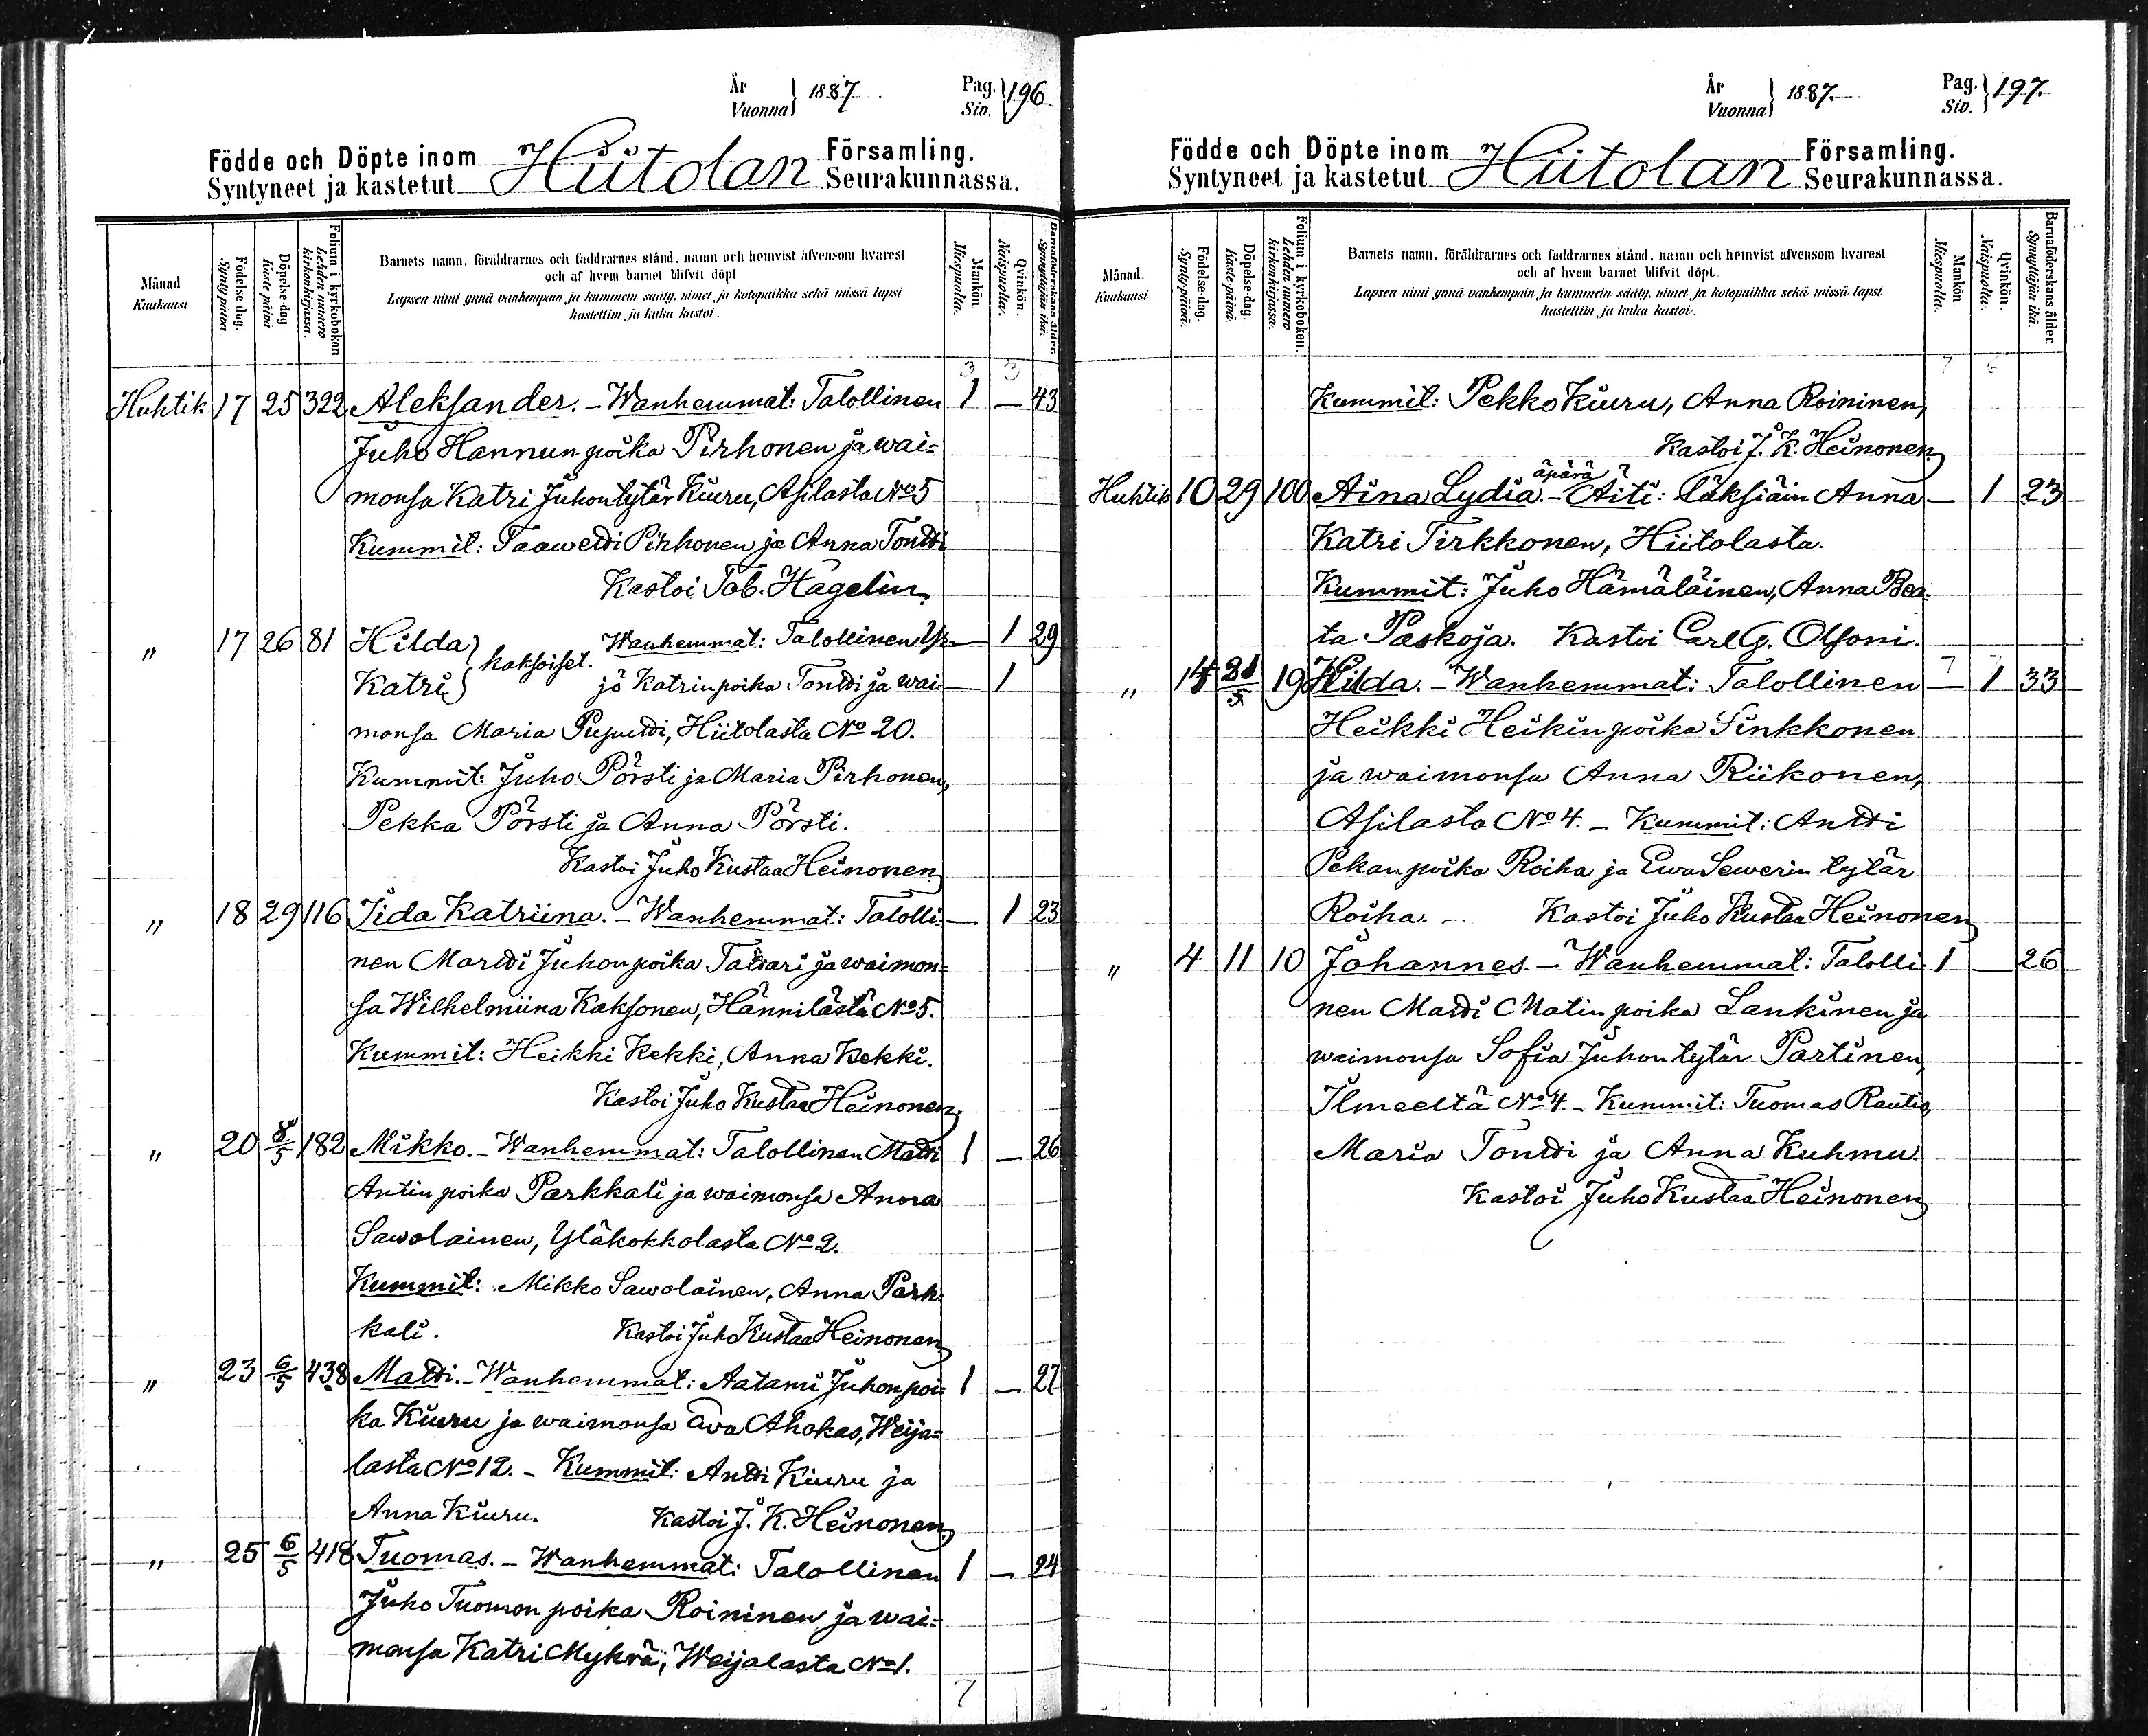 År
Vuonna } 1887.
Pag.
Siv. } 196
Födde och Döpte inom Hiitolan Församling.
Syntyneet ja kastetut Seurakunnassa.
Månad
Kuukausi
Födelse-dag.
Synty-päivä
Döpelse-dag
Kaste päivä
Folium i kyrkoboken
Lehden numero
kirkonkirjassa.
Barnets namn, föräldrarnes och faddrarnes stånd, namn och hemvist äfvensom hvarest
och af hvem barnet blifvit döpt
Lapsen nimi ynnä vanhempain ja kummein sääty, nimet ja kotopaikka sekä missä lapsi
kastettiin ja kuka kastoi.
Mankön
Miespuolia.
Qvinkön.
Naispuolia.
Barnaföderskans ålder.
Synnyttäjän ikä.
3 3
Huhtik 17 25 322 Aleksander. – Wanhemmat: Talollinen 1 — 43
Juho Hannunpoika Pirhonen ja wai=
monsa Katri Juhontytär Kiuru, Asilasta No 5
Kummit: Taawetti Pirhonen ja Anna Tontti
Kastoi Tob. Hagelin.
" 17 26 81 Hilda } kaksoiset. Wanhemmat: Talollinen Yr — 1 29
Katri } jö Katrinpoika Tontti ja wai — 1
monsa Maria Puputti, Hiitolasta No 20.
Kummit: Juho Pörsti ja Maria Pirhonen,
Pekka Pörsti ja Anna Pörsti.
Kastoi Juho Kustaa Heinonen
" 18 29 116 Iida Katriina. – Wanhemmat: Talolli= — 1 23
nen Martti Juhonpoika Tattari ja waimon=
sa Wilhelmiina Kaksonen, Hännilästä No 5.
Kummit: Heikki Kekki, Anna Kekki.
Kastoi Juho Kustaa Heinonen.
" 20 8/5 182 Mikko. – Wanhemmat: Talollinen Matti 1 — 26
Antinpoika Parkkali ja waimonsa Anna
Sawolainen, Yläkokkolasta No 2.
Kummit: Mikko Sawolainen, Anna Park=
kali. Kastoi Juho Kustaa Heinonen
" 23 6/5 438 Matti. – Wanhemmat: Aatami Juhonpoi= 1 — 27
ka Kiuru ja waimonsa Ewa Ahokas, Weija=
lasta No 12. – Kummit: Antti Kiuru ja
Anna Kiuru. Kastoi J. K. Heinonen
" 25 6/5 418 Tuomas. – Wanhemmat: Talollinen 1 — 24
Juho Tuomonpoika Roininen ja wai=
monsa Katri Mykrä, Weijalasta No 1.
7
År
Vuonna } 1887.
Pag.
Siv. } 197.
Födde och Döpte inom Hiitolan Församling.
Syntyneet ja kastetut Seurakunnassa.
Månad.
Kuukausi.
Födelse-dag.
Synty-päivä.
Döpelse-dag.
Kaste-päivä.
Folium i kyrkoboken.
Lehden numero
kirkonkirjassa.
Barnets namn, föräldrarnes och faddrarnes stånd, namn och hemvist äfvensom hvarest
och af hvem barnet blifvit döpt.
Lapsen nimi ynnä vanhempain ja kummein sääty, nimet ja kotopaikka sekä missä lapsi
kastettiin ja kuka kastoi.
Mankön
Miespuolia.
Qvinkön.
Naispuolia.
Barnaföderskans ålder.
Synnyttäjän ikä.
7
Kummit: Pekko Kiuru, Anna Roininen,
Kastoi J. K. Heinonen
äpärä
Huhtik 10 29 100 Aina Lydia. – Äiti: Läksiäin Anna — 1 23
Katri Tirkkonen, Hiitolasta.
Kummit: Juho Hämäläinen, Anna Bea=
ta Paskoja. Kastoi Carl G. Olsoni.
7
" 19 Hilda. – Wanhemmat: Talollinen — 1 33
Heikki Heikinpoika Sinkkonen
ja waimonsa Anna Riikonen,
Asilasta No 4. – Kummit: Antti
Pekanpoika Roiha ja Ewa Sewerin tytär
Roiha. – Kastoi Juho Kustaa Heinonen
" 4 11 10 Johannes. – Wanhemmat: Talolli 1 — 26
nen Matti Matinpoika Lankinen ja
waimonsa Sofia Juhontytär Partinen,
Ilmeeltä No 4. – Kummit: Tuomas Rautio,
Maria Tontti ja Anna Kuhmu
Kastoi Juho Kustaa Heinonen